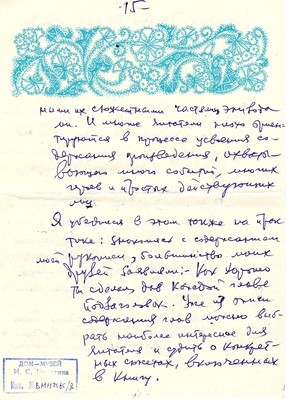 -15-
мыми их сюжетными частями, эпизода-
ми. И многие читатели легко ориен-
тируются в процессе усвоения со-
держания произведения, охваты-
вающего много событий, многих
героев и простых действующих
лиц.
Я убедился в этом также на прак-
тике: знакомясь с содержанием
моей рукописи, большинство моих
друзей заявили: – Как хорошо
ты сделал для каждой главы
подзаголовок. Уже из описи
содержания глав можно выб-
рать наиболее интересное для
читателя и судить о конкрет-
ных сюжетах, включенных
в книгу.
ДОМ–МУЗЕЙ
И. С.
Инв. №